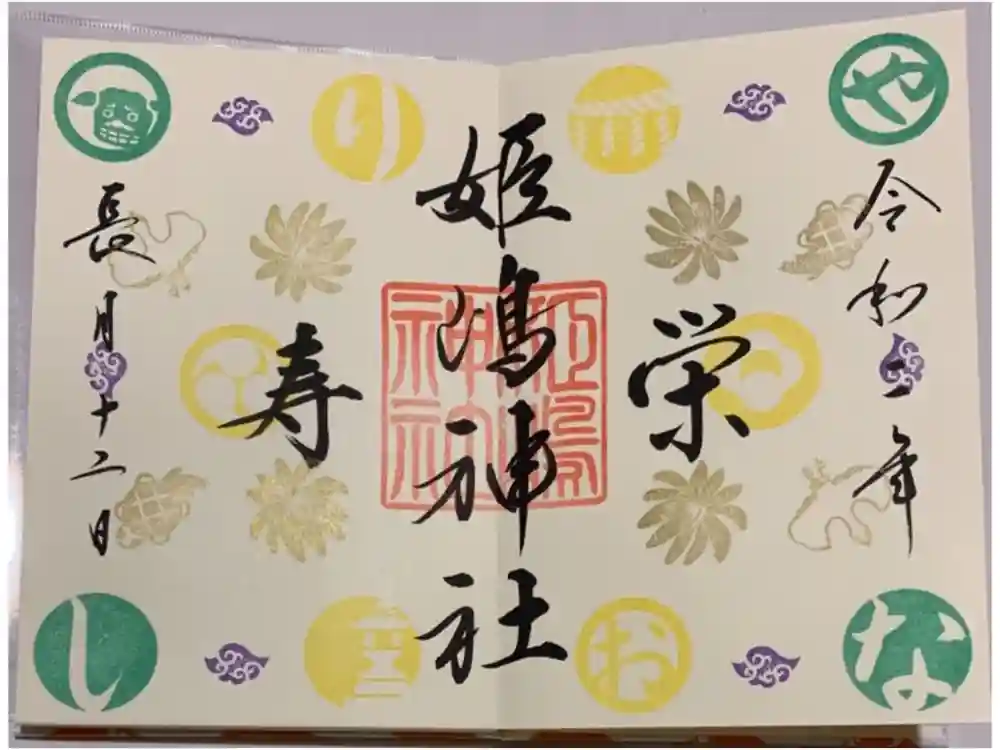 や
令和二年
な
栄
お
姫嶋神社
姫嶋
神社
り
寿
長月十二日
し